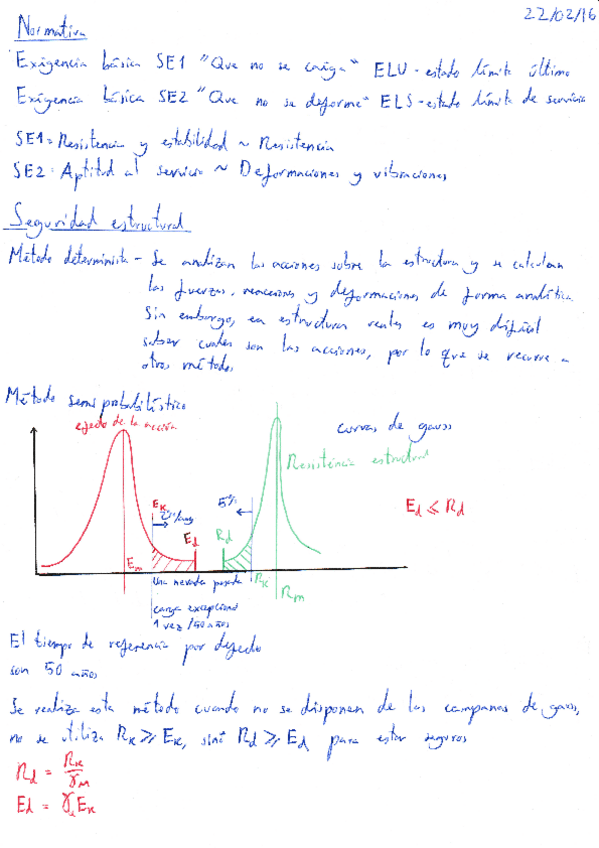 22/02/16
Normativa
Exigencia básica SE1 "Que no se caiga" ELU - estado límite último
Exigencia básica SE2 "Que no se deforme" ELS - estado límite de servicio
SE1 = Resistencia y estabilidad ~ Resistencia
SE2 = Aptitud al servicio ~ Deformaciones y vibraciones
Seguridad estructural
Método determinista - Se analizan las acciones sobre la estructura y se calculan
las fuerzas, reacciones y deformaciones de forma analítica
Sin embargo, en estructuras reales es muy difícil
saber cuales son las acciones, por lo que se recurre a
otros métodos
Método semiprobabilístico
efecto de la acción
curvas de gauss
Resistencia estructural
Ek
5%
Ed ≤ Rd
Ed
Rd
Em
Una nevada pesada
Rk
Rm
carga excepcional
1 vez /50 años
El tiempo de referencia por defecto
son 50 años
Se realiza este método cuando no se disponen de las campanas de gauss,
no se utiliza Rk ≥ Ek, sino Rd ≥ Ed para estar seguros
Rd = Rk / γM
Ed = γ Ek